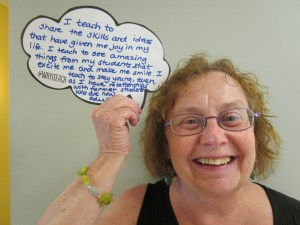 I teach to
share the skills and ideas
that have given me joy in my
life. I teach to see amazing
things from my students that
excite me and make me smile. I
teach to stay young, even
as I have relationships
with former students
who are now
#WHYITEACH